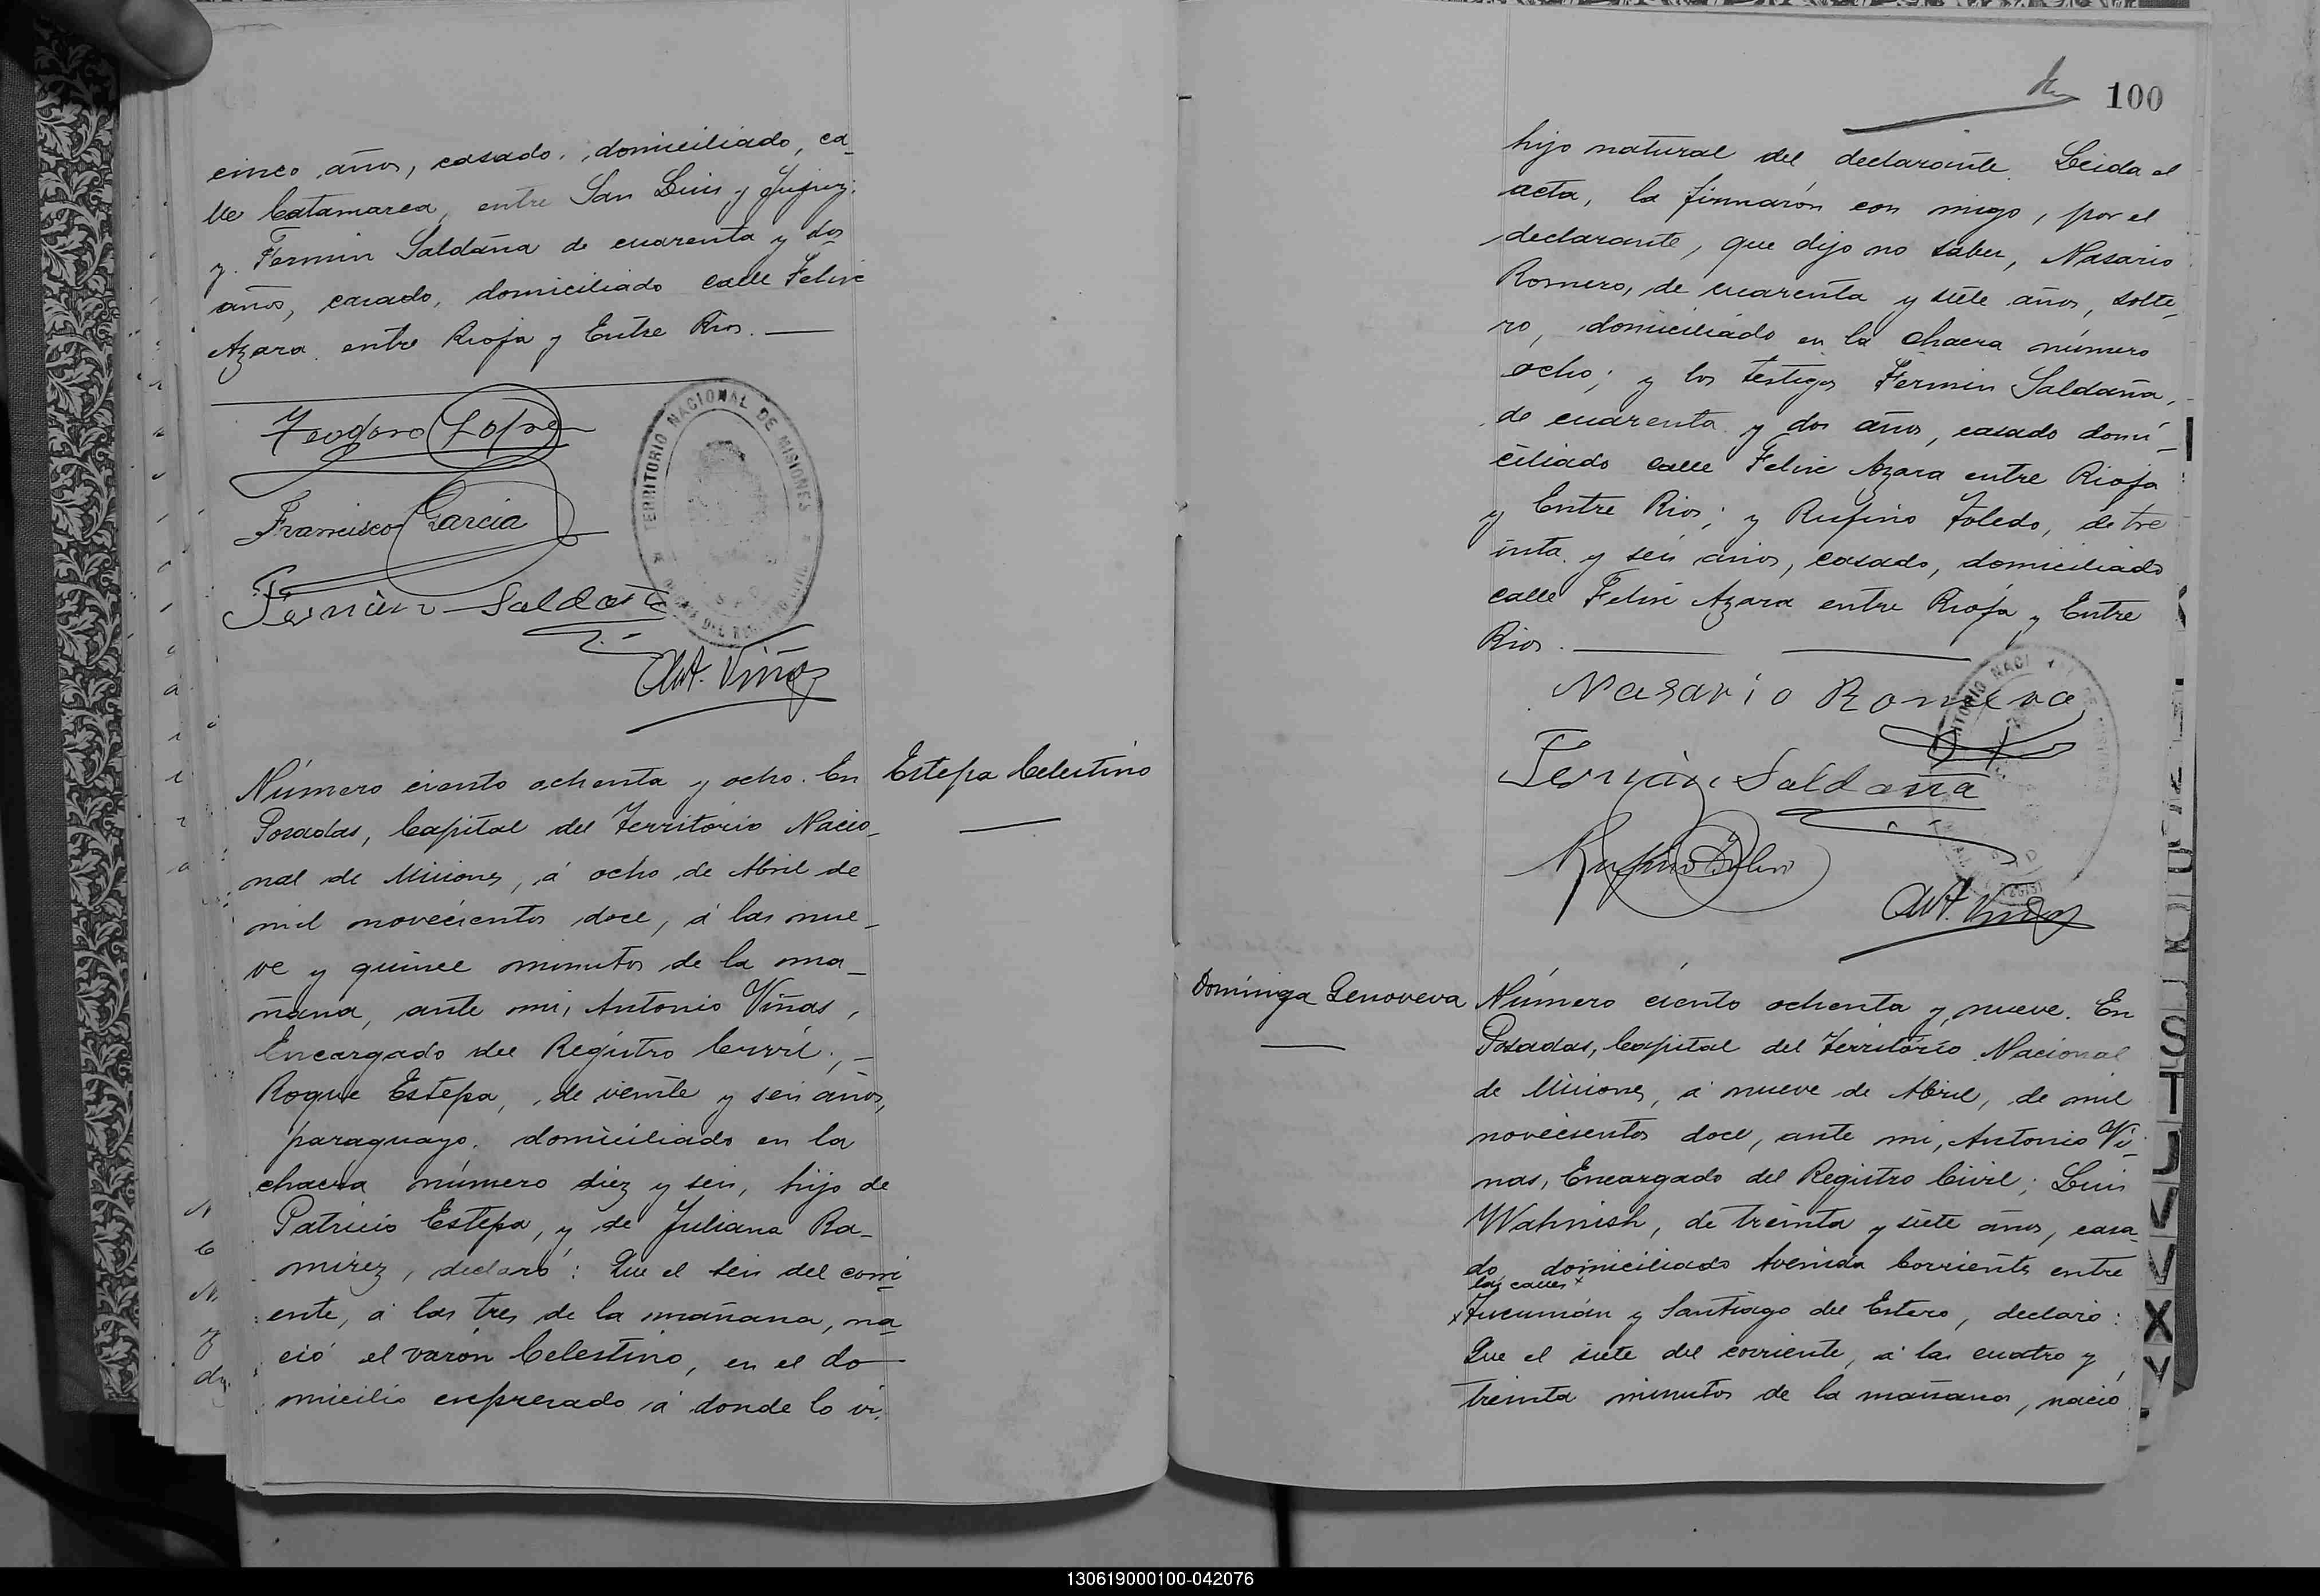 cinco años, casado, domiciliado, ca_
lle Catamarca, entre San Luis y Jujuy;
y Fermin Saldaña de cuarenta y dos
años, casado, domiciliado calle Felix
Azara entre Rioja y Entre Rios. —
Teodoro Lopez
Francisco Garcia
Fermin Saldaña
TERRITORIO NACIONAL DE MISIONES
Ant. Viñas
Número ciento ochenta y ocho. En
Estepa Celestino
Posadas, Capital del Territorio Nacio_
nal de Misiones, á ocho de Abril de
mil novecientos doce, á las nue_
ve y quince minutos de la ma_
ñana, ante mi, Antonio Viñas,
Encargado del Registro Civil; _
Roque Estepa, de veinte y seis años,
paraguayo, domiciliado en la
chacra número diez y seis, hijo de
Patricio Estepa, y de Juliana Ra_
mirez, declaró: Que el seis del corri_
ente, á las tres de la mañana, na_
ció el varón Celestino, en el do_
micilio expresado á donde lo vi,
100
hijo natural del declarante. Leida el
acta, la firmarón con migo, por el
declarante, que dijo no saber, Nasario
Romero, de cuarenta y siete años, solte_
ro, domiciliado en la chacra número
ocho; y los testigos Fermin Saldaña,
de cuarenta y dos años, casado domi_
ciliado calle Felix Azara entre Rioja
y Entre Rios; y Rufino Toledo, de tre
inta y seis años, casado, domiciliado
calle Felix Azara entre Rioja y Entre
Rios. —
Nasario Romero
Fermin Saldaña
Rufino Toledo
Ant. Viñas
Dominga Genoveva
Número ciento ochenta y nueve. En
Posadas, Capital del Territorio Nacional
de Misiones, á nueve de Abril, de mil
novecientos doce, ante mi, Antonio Vi_
ñas, Encargado del Registro Civil; Luis
Wahnish, de treinta y siete años, casa_
do domiciliado Avenida Corrientes entre
las calles x
x Tucumán y Santiago del Estero, declaró:
Que el siete del corriente, á las cuatro y
treinta minutos de la mañana, nació
130619000100-042076